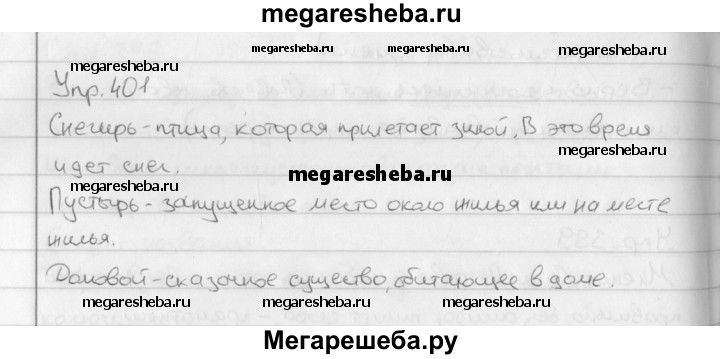 megaresheba.ru
megaresheba.ru megaresheba.ru megaresheba.ru
megaresheba.ru
Упр. 401
Снегирь - птица, которая прилетает зимой. В это время
megaresheba.ru
идет снег.
megaresheba.ru
megaresheba.ru
Пустырь - запущенное место около жилья или на месте
жилья.
Домовой - сказочное существо, обитающее в доме.
megaresheba.ru megaresheba.ru megaresheba.ru
Мегарешеба.ру